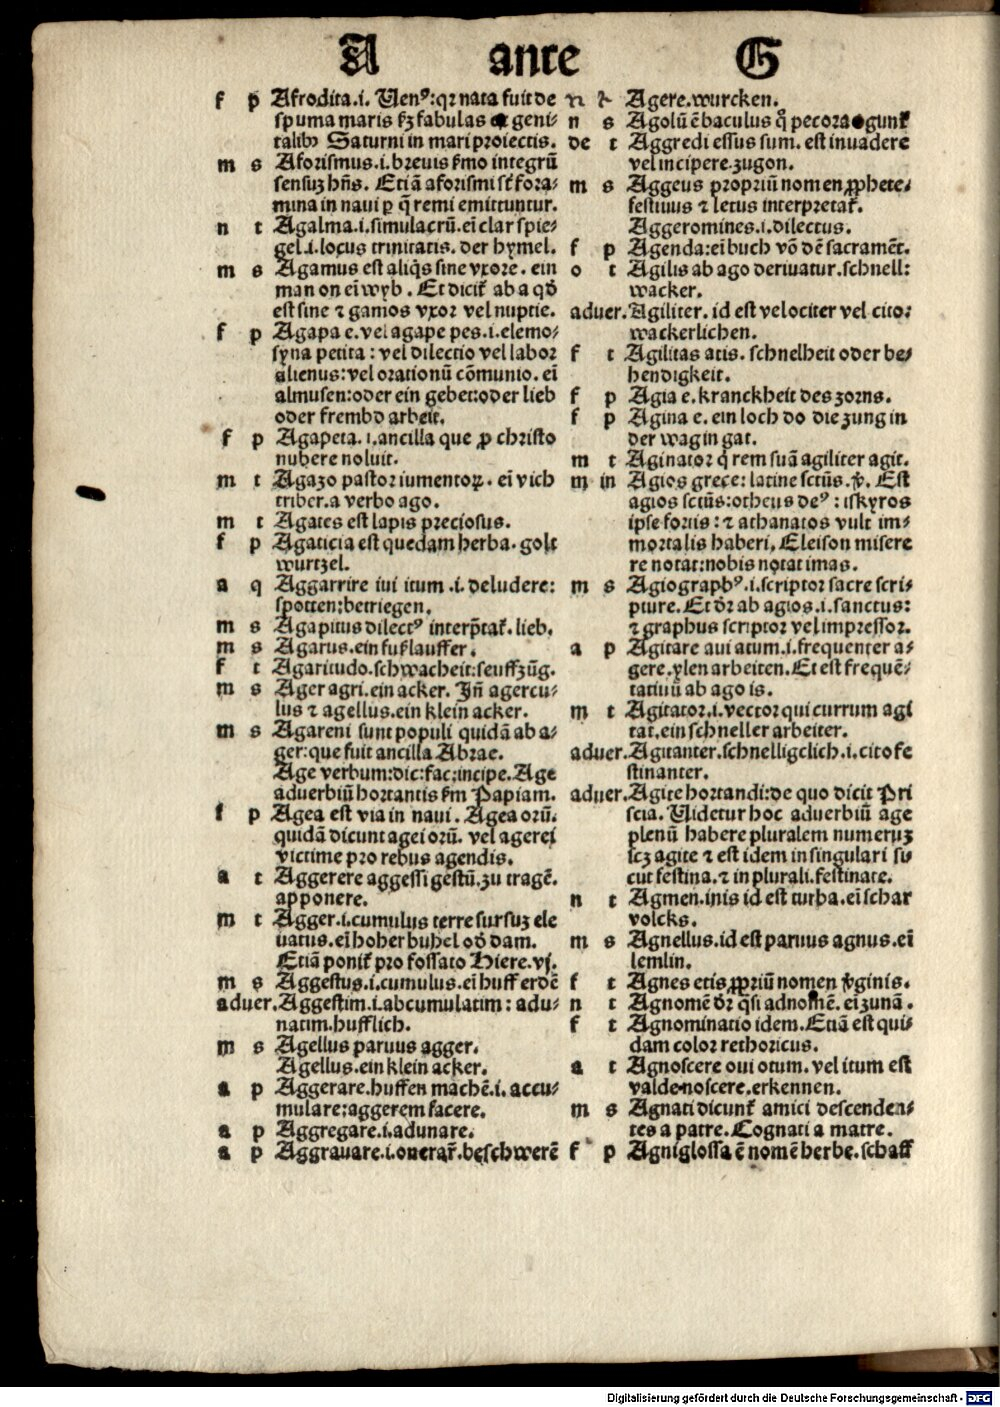 A ante G
f p Afrodita.i. Venꝰ:qꝛ nata fuit de
spuma maris ẜm fabulas geni⸗
talibꝫ Saturni in mari proiectis.
m s Aforismus.i.breuis ẜmo integrū
sensuꝫ hn̄s. Etiā aforismi st̄ fora⸗
mina in naui ꝑ q̄ remi emittuntur.
n t Agalma.i.simulacrū.eī clar spie⸗
gel.i.locus trinitatis. der hymel.
m s Agamus est aliq̄s sine vxore. ein
man on eī wyb. Et dicit᷑ ab a qd̄
est sine ⁊ gamos vxor vel nuptie.
f p Agapa e.vel agape pes.i.elemo⸗
syna petita: vel dilectio vel labor
alienus:vel orationū cōmunio. eī
almusen:oder ein gebet:oder lieb
oder frembd arbeit.
f p Agapeta. i.ancilla que ꝓ christo
nubere noluit.
m t Agazo pastor iumentoꝝ. eī vich
triber.a verbo ago.
m t Agates est lapis preciosus.
f p Agaticia est quedam herba. golt
wurtzel.
a q Aggarrire iui itum.i.deludere:
spotten:betriegen.
m s Agapitus dilectꝰ interp̄tat᷑.lieb.
m s Agarus.ein fußlauffer.
f t Agaritudo.schwacheit:seuffzūg.
m s Ager agri.ein acker. Jn̄ agercu⸗
lus ⁊ agellus.ein klein acker.
m s Agareni sunt populi quidā ab a⸗
ger:que fuit ancilla Abrae.
Age verbum:dic:fac:incipe.Age
aduerbiū hortantis ẜm Papiam.
f p Agea est via in naui. Agea orū.
quidā dicunt agei orū. vel agerei
victime pro rebus agendis.
a t Aggerere aggessi gestū.zu tragē.
apponere.
m t Agger.i.cumulus terre sursuꝫ ele
uatus.eī hoher buhel od̄ dam.
Etiā ponit᷑ pro fossato Hiere.vj.
m s Aggestus.i.cumulus.eī huff erdē
aduer. Aggestim.i.abcumulatim: adu⸗
natim.hufflich.
m s Agellus paruus agger.
Agellus.ein klein acker.
a p Aggerare.huffen machē.i.accu⸗
mulare:aggerem facere.
a p Aggregare.i.adunare.
a p Aggrauare.i.onerar᷑.beschwerē
Agere.wurcken.
n s Agolū ē baculus q̊ pecora agunt᷑
de t Aggredi essus sum. est inuadere
vel incipere.zugon.
m s Aggeus propriū nomen ꝓphete.
festiuus ⁊ letus interpretat᷑.
Aggeromines.i.dilectus.
f p Agenda:eī buch vō dē sacramēt.
o t Agilis ab ago deriuatur.schnell:
wacker.
aduer. Agiliter. id est velociter vel cito:
wackerlichen.
f t Agilitas atis. schnelheit oder be⸗
hendigkeit.
f p Agia e.kranckheit des zorns.
f p Agina e. ein loch do die zung in
der wag in gat.
m t Aginator q̄ rem suā agiliter agit.
m in Agios grece: latine sctūs. Est
agios sctūs:otheus deꝰ: iskyros
ipse fortis: ⁊ athanatos vult im⸗
mortalis haberi, Eleison misere
re notat:nobis notat imas.
m s Agiographꝰ.i.scriptor sacre scri⸗
pture. Et dr̄ ab agios.i.sanctus:
⁊ graphus scriptor vel impressor.
a p Agitare aui atum.i.frequenter a⸗
gere.ylen arbeiten. Et est frequē⸗
tatiuū ab ago is.
m t Agitator.i.vector qui currum agi
tat.ein schneller arbeiter.
aduer. Agitanter.schnelligclich.i.cito fe
stinanter.
aduer. Agite hortandi:de quo dicit Pri
scia. Videtur hoc aduerbiū age
plenū habere pluralem numeruꝫ
scꝫ agite ⁊ est idem in singulari si
cut festina. ⁊ in plurali.festinate.
n t Agmen.inis id est turba.eī schar
volcks.
m s Agnellus.id est paruus agnus.eī
lemlin.
f t Agnes etis.ꝓpriū nomen v̄ginis.
n t Agnomē dr̄ q̄si adnomē. eī zunā.
f t Agnominatio idem. Etiā est qui⸗
dam color rethoricus.
a t Agnoscere oui otum. vel itum est
valde noscere.erkennen.
m s Agnati dicunt᷑ amici descenden⸗
tes a patre. Cognati a matre.
f p Agniglossa ē nomē herbe.schaff
Digitalisierung gefördert durch die Deutsche Forschungsgemeinschaft - DFG